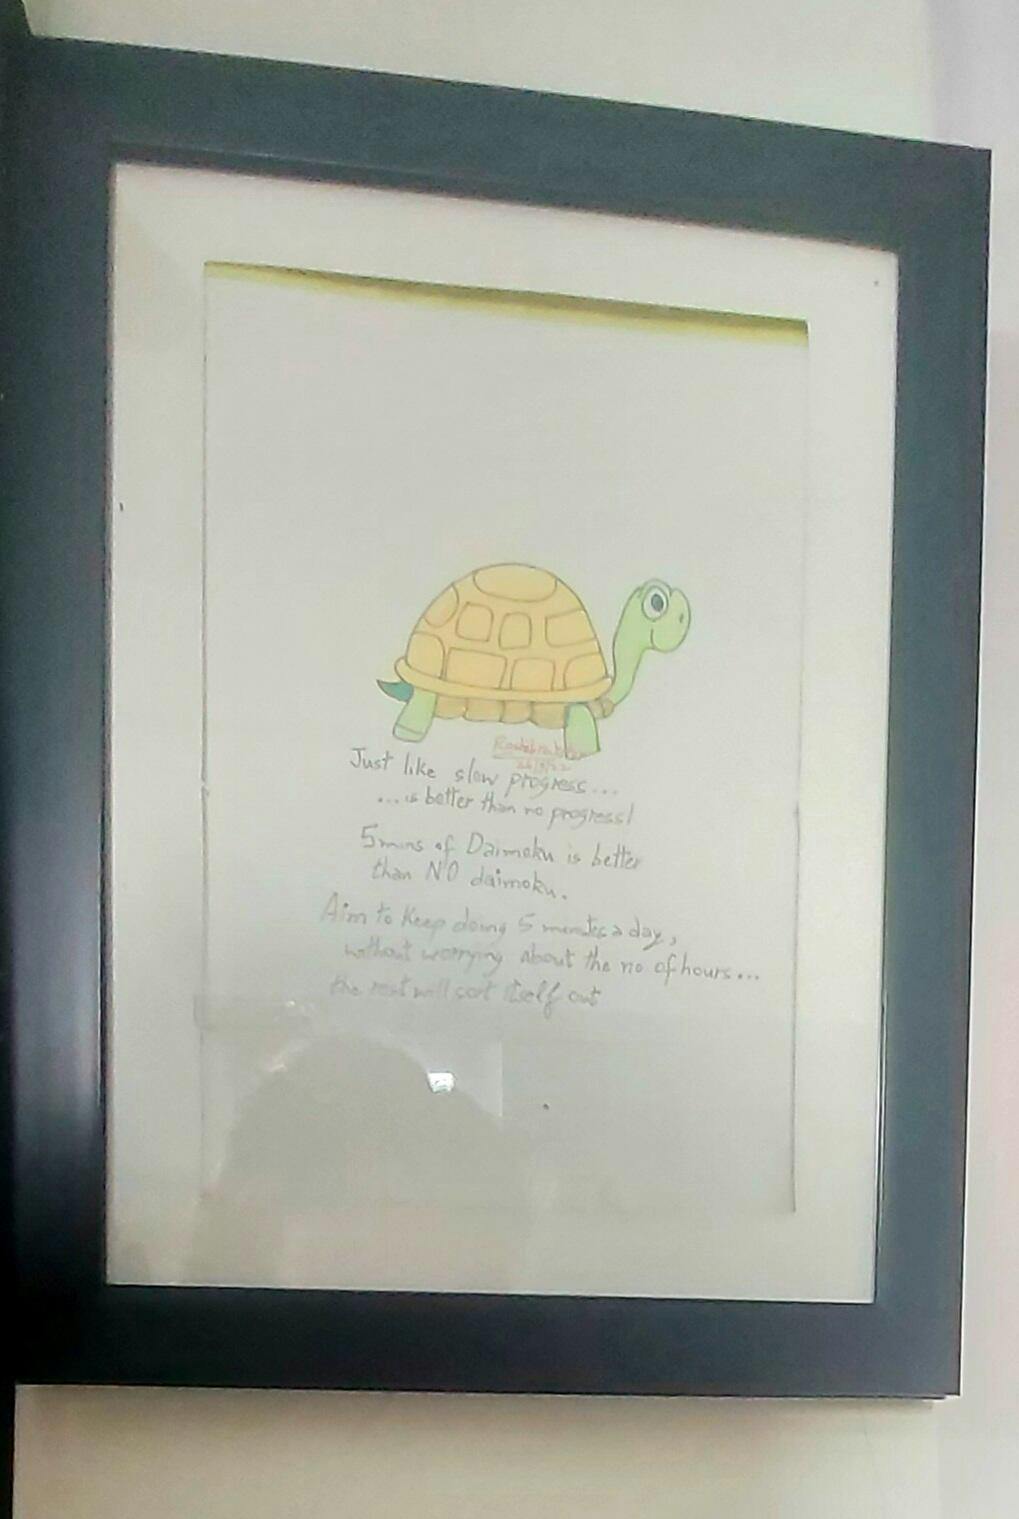 Just like slow progress...
...is better than no progress!
5mins of Daimoku is better
than NO daimoku.
Aim to keep doing 5 minutes a day,
without worrying about the no of hours...
the rest will sort itself out